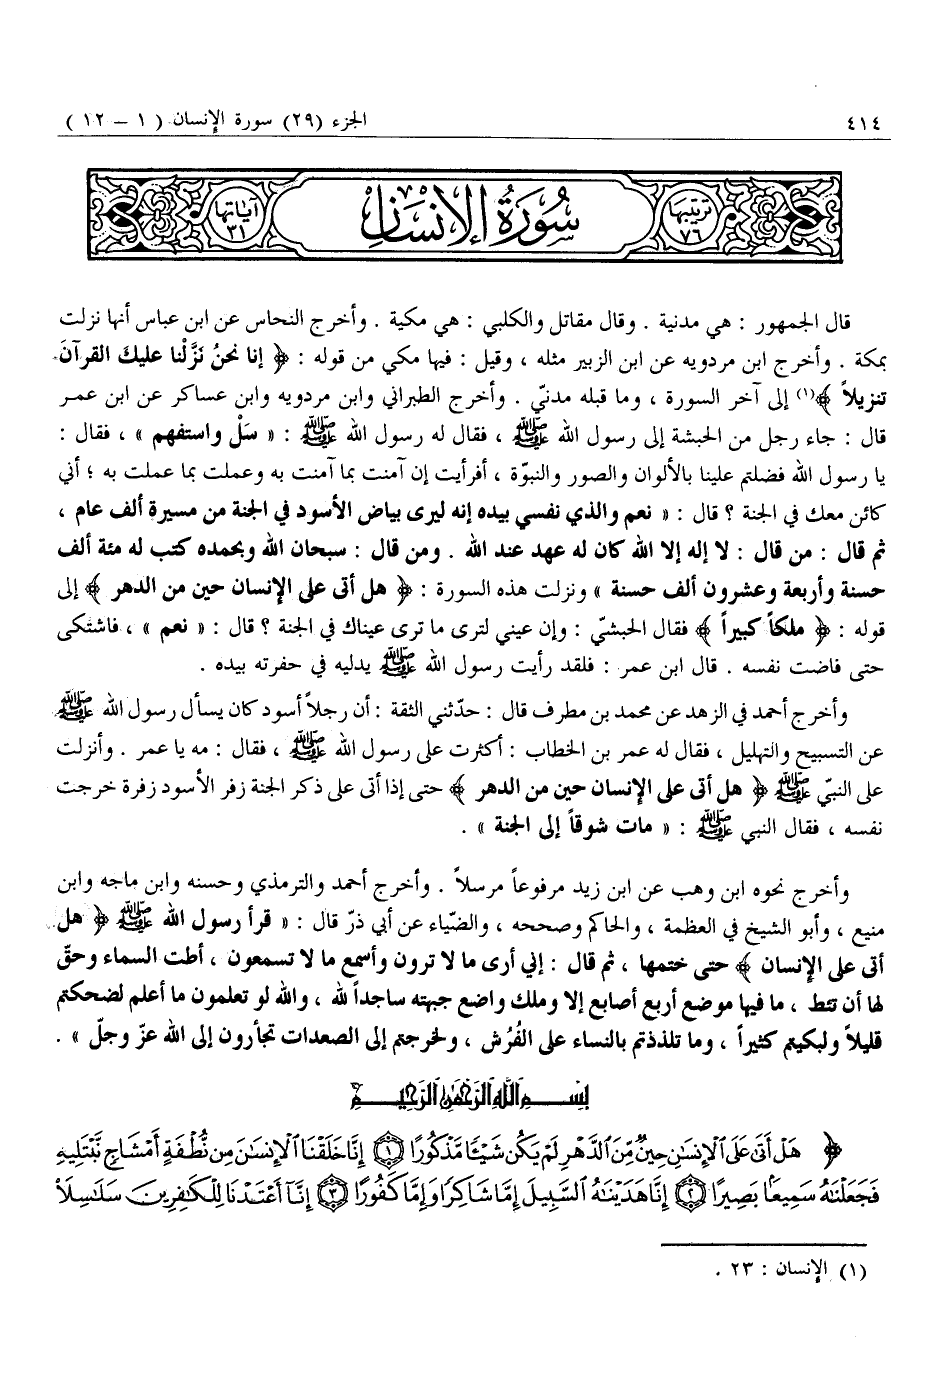 ٤١٤ الجزء (٢٩) سورة الإنسان ( ١ – ١٢ )
ترتيبها ٧٦ سورة الإنسان آياتها ٣١
قال الجمهور : هي مدنية . وقال مقاتل والكلبي : هي مكية . وأخرج النحاس عن ابن عباس أنها نزلت
بمكة . وأخرج ابن مردويه عن ابن الزبير مثله ، وقيل : فيها مكي من قوله : ﴿ إنا نحنُ نَزَّلْنا عليكَ القرآنَ
تنزيلاً ﴾(١) إلى آخر السورة ، وما قبله مدنيّ . وأخرج الطبراني وابن مردويه وابن عساكر عن ابن عمر
قال : جاء رجل من الحبشة إلى رسول الله ﷺ ، فقال له رسول الله ﷺ : « سَلْ واستفهم » ، فقال :
يا رسول الله فضلتم علينا بالألوان والصور والنبوّة ، أفرأيت إن آمنت بما آمنت به وعملت بما عملت به ؛ أني
كائن معك في الجنة ؟ قال : « نعم والذي نفسي بيده إنه ليرى بياض الأسود في الجنة من مسيرة ألف عام ،
ثم قال : من قال : لا إله إلا الله كان له عهد عند الله . ومن قال : سبحان الله وبحمده كتب له مئة ألف
حسنة وأربعة وعشرون ألف حسنة » ونزلت هذه السورة : ﴿ هل أتى على الإنسان حين من الدهر ﴾ إلى
قوله : ﴿ ملكاً كبيراً ﴾ فقال الحبشيّ : وإن عيني لترى ما ترى عيناك في الجنة ؟ قال : « نعم » ، فاشتكى
حتى فاضت نفسه . قال ابن عمر : فلقد رأيت رسول الله ﷺ يدليه في حفرته بيده .
وأخرج أحمد في الزهد عن محمد بن مطرف قال : حدّثني الثقة : أن رجلاً أسود كان يسأل رسول الله ﷺ
عن التسبيح والتهليل ، فقال له عمر بن الخطاب : أكثرت على رسول الله ﷺ ، فقال : مه يا عمر . وأنزلت
على النبيّ ﷺ ﴿ هل أتى على الإنسان حين من الدهر ﴾ حتى إذا أتى على ذكر الجنة زفر الأسود زفرة خرجت
نفسه ، فقال النبي ﷺ : « مات شوقاً إلى الجنة » .
وأخرج نحوه ابن وهب عن ابن زيد مرفوعاً مرسلاً . وأخرج أحمد والترمذي وحسنه وابن ماجه وابن
منيع ، وأبو الشيخ في العظمة ، والحاكم وصححه ، والضّياء عن أبي ذرّ قال : « قرأ رسول الله ﷺ ﴿ هل
أتى على الإنسان ﴾ حتى ختمها ، ثم قال : إني أرى ما لا ترون وأسمع ما لا تسمعون ، أطت السماء وحقّ
لها أن تئط ، ما فيها موضع أربع أصابع إلا وملك واضع جبهته ساجداً لله ، والله لو تعلمون ما أعلم لضحكتم
قليلاً ولبكيتم كثيراً ، وما تلذذتم بالنساء على الفُرُش ، ولخرجتم إلى الصعدات تجأرون إلى الله عزّ وجلّ » .
بسم الله الرحمن الرحيم
﴿ هَلْ أَتَىٰ عَلَى ٱلْإِنسَٰنِ حِينٌ مِّنَ ٱلدَّهْرِ لَمْ يَكُن شَيْـًٔا مَّذْكُورًا ١ إِنَّا خَلَقْنَا ٱلْإِنسَٰنَ مِن نُّطْفَةٍ أَمْشَاجٍ نَّبْتَلِيهِ
فَجَعَلْنَٰهُ سَمِيعًۢا بَصِيرًا ٢ إِنَّا هَدَيْنَٰهُ ٱلسَّبِيلَ إِمَّا شَاكِرًا وَإِمَّا كَفُورًا ٣ إِنَّآ أَعْتَدْنَا لِلْكَٰفِرِينَ سَلَٰسِلَا۟
(١) الإنسان : ٢٣ .